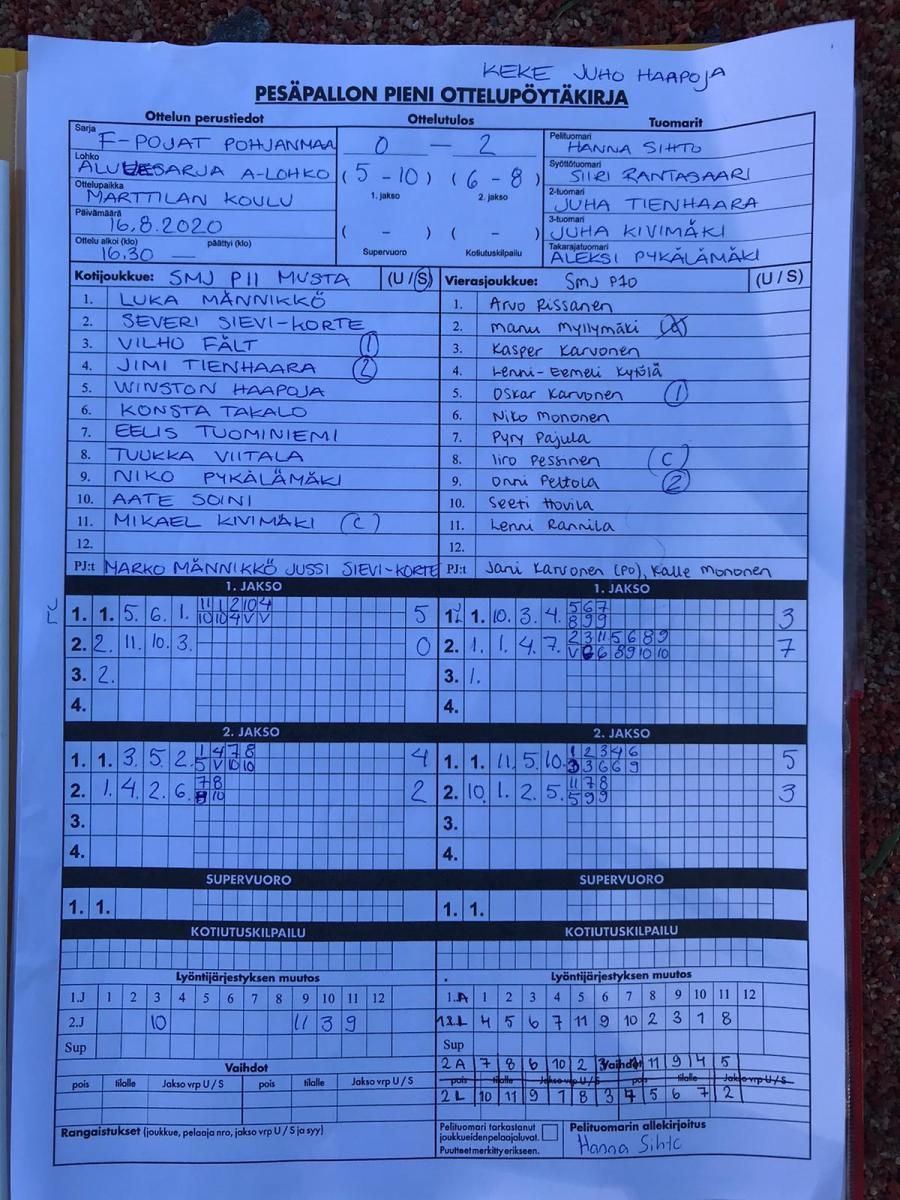 KEKE JUHO HAAPOJA
PESÄPALLON PIENI OTTELUPÖYTÄKIRJA
Ottelun perustiedot Ottelutulos Tuomarit
Sarja F-POJAT POHJANMAA
0 - 2
Pelituomari HANNA SIHTO
Lohko ALUESARJA A-LOHKO
(5-10) (6-8)
1. jakso 2. jakso
Syöttötuomari SIIRI RANTASAARI
Ottelupaikka MARTTILAN KOULU
2-tuomari JUHA TIENHAARA
Päivämäärä 16.8.2020
( - ) ( - )
Supervuoro Kotiutuskilpailu
3-tuomari JUHA KIVIMÄKI
Ottelu alkoi (klo) 16.30 päättyi (klo) —
Takarajatuomari ALEKSI PYKÄLÄMÄKI
Kotijoukkue: SMJ P11 MUSTA (U / S)
1. LUKA MÄNNIKKÖ
2. SEVERI SIEVI-KORTE
3. VILHO FÄLT 1
4. JIMI TIENHAARA 2
5. WINSTON HAAPOJA
6. KONSTA TAKALO
7. EELIS TUOMINIEMI
8. TUUKKA VIITALA
9. NIKO PYKÄLÄMÄKI
10. AATE SOINI
11. MIKAEL KIVIMÄKI (C)
12.
PJ:t MARKO MÄNNIKKÖ JUSSI SIEVI-KORTE
Vierasjoukkue: SMJ P10 (U / S)
1. Arvo Rissanen
2. Manu Myllymäki
3. Kasper Karvonen
4. Lenni-Eemeli Kytölä
5. Oskar Karvonen 1
6. Niko Mononen
7. Pyry Pajula
8. Iiro Pessinen (C)
9. Onni Peltola 2
10. Seeti Hovila
11. Lenni Rannila
12.
PJ:t Jani Karvonen (PO), Kalle Mononen
1. JAKSO
1. 1. 5. 6. 1. 11 1 2 10 4 5
10 10 4 V V
2. 2. 11. 10. 3. 0
3. 2.
4.
1. JAKSO
1. 1. 10. 3. 4. 5 6 7 3
8 9 9
2. 1. 1. 4. 7. 2 3 11 5 6 8 9 7
V 6 6 8 9 10 10
3. 1.
4.
2. JAKSO
1. 1. 3. 5. 2. 1 4 7 8 4
5 V 10 10
2. 1. 4. 2. 6. 7 8 2
10
3.
4.
2. JAKSO
1. 1. 11. 5. 10. 1 2 3 4 6 5
3 3 6 6 9
2. 10. 1. 2. 5. 11 7 8 3
5 9 9
3.
4.
SUPERVUORO
1. 1.
SUPERVUORO
1. 1.
KOTIUTUSKILPAILU
KOTIUTUSKILPAILU
Lyöntijärjestyksen muutos
1.J 1 2 3 4 5 6 7 8 9 10 11 12
2.J 10 11 3 9
Sup
Vaihdot
pois tilalle Jakso vrp U / S pois tilalle Jakso vrp U / S
Rangaistukset (joukkue, pelaaja nro, jakso vrp U / S ja syy)
Lyöntijärjestyksen muutos
1.A 1 2 3 4 5 6 7 8 9 10 11 12
4 5 6 7 11 9 10 2 3 1 8
Sup
2 A 7 8 6 10 2 Vaihdot 11 9 4 5
pois tilalle Jakso vrp U / S pois tilalle Jakso vrp U / S
2 L 10 11 9 1 8 3 4 5 6 7 2
Pelituomari tarkastanut
joukkueiden pelaajaluvat.
Puutteet merkitty erikseen.
Pelituomarin allekirjoitus
Hanna Sihto